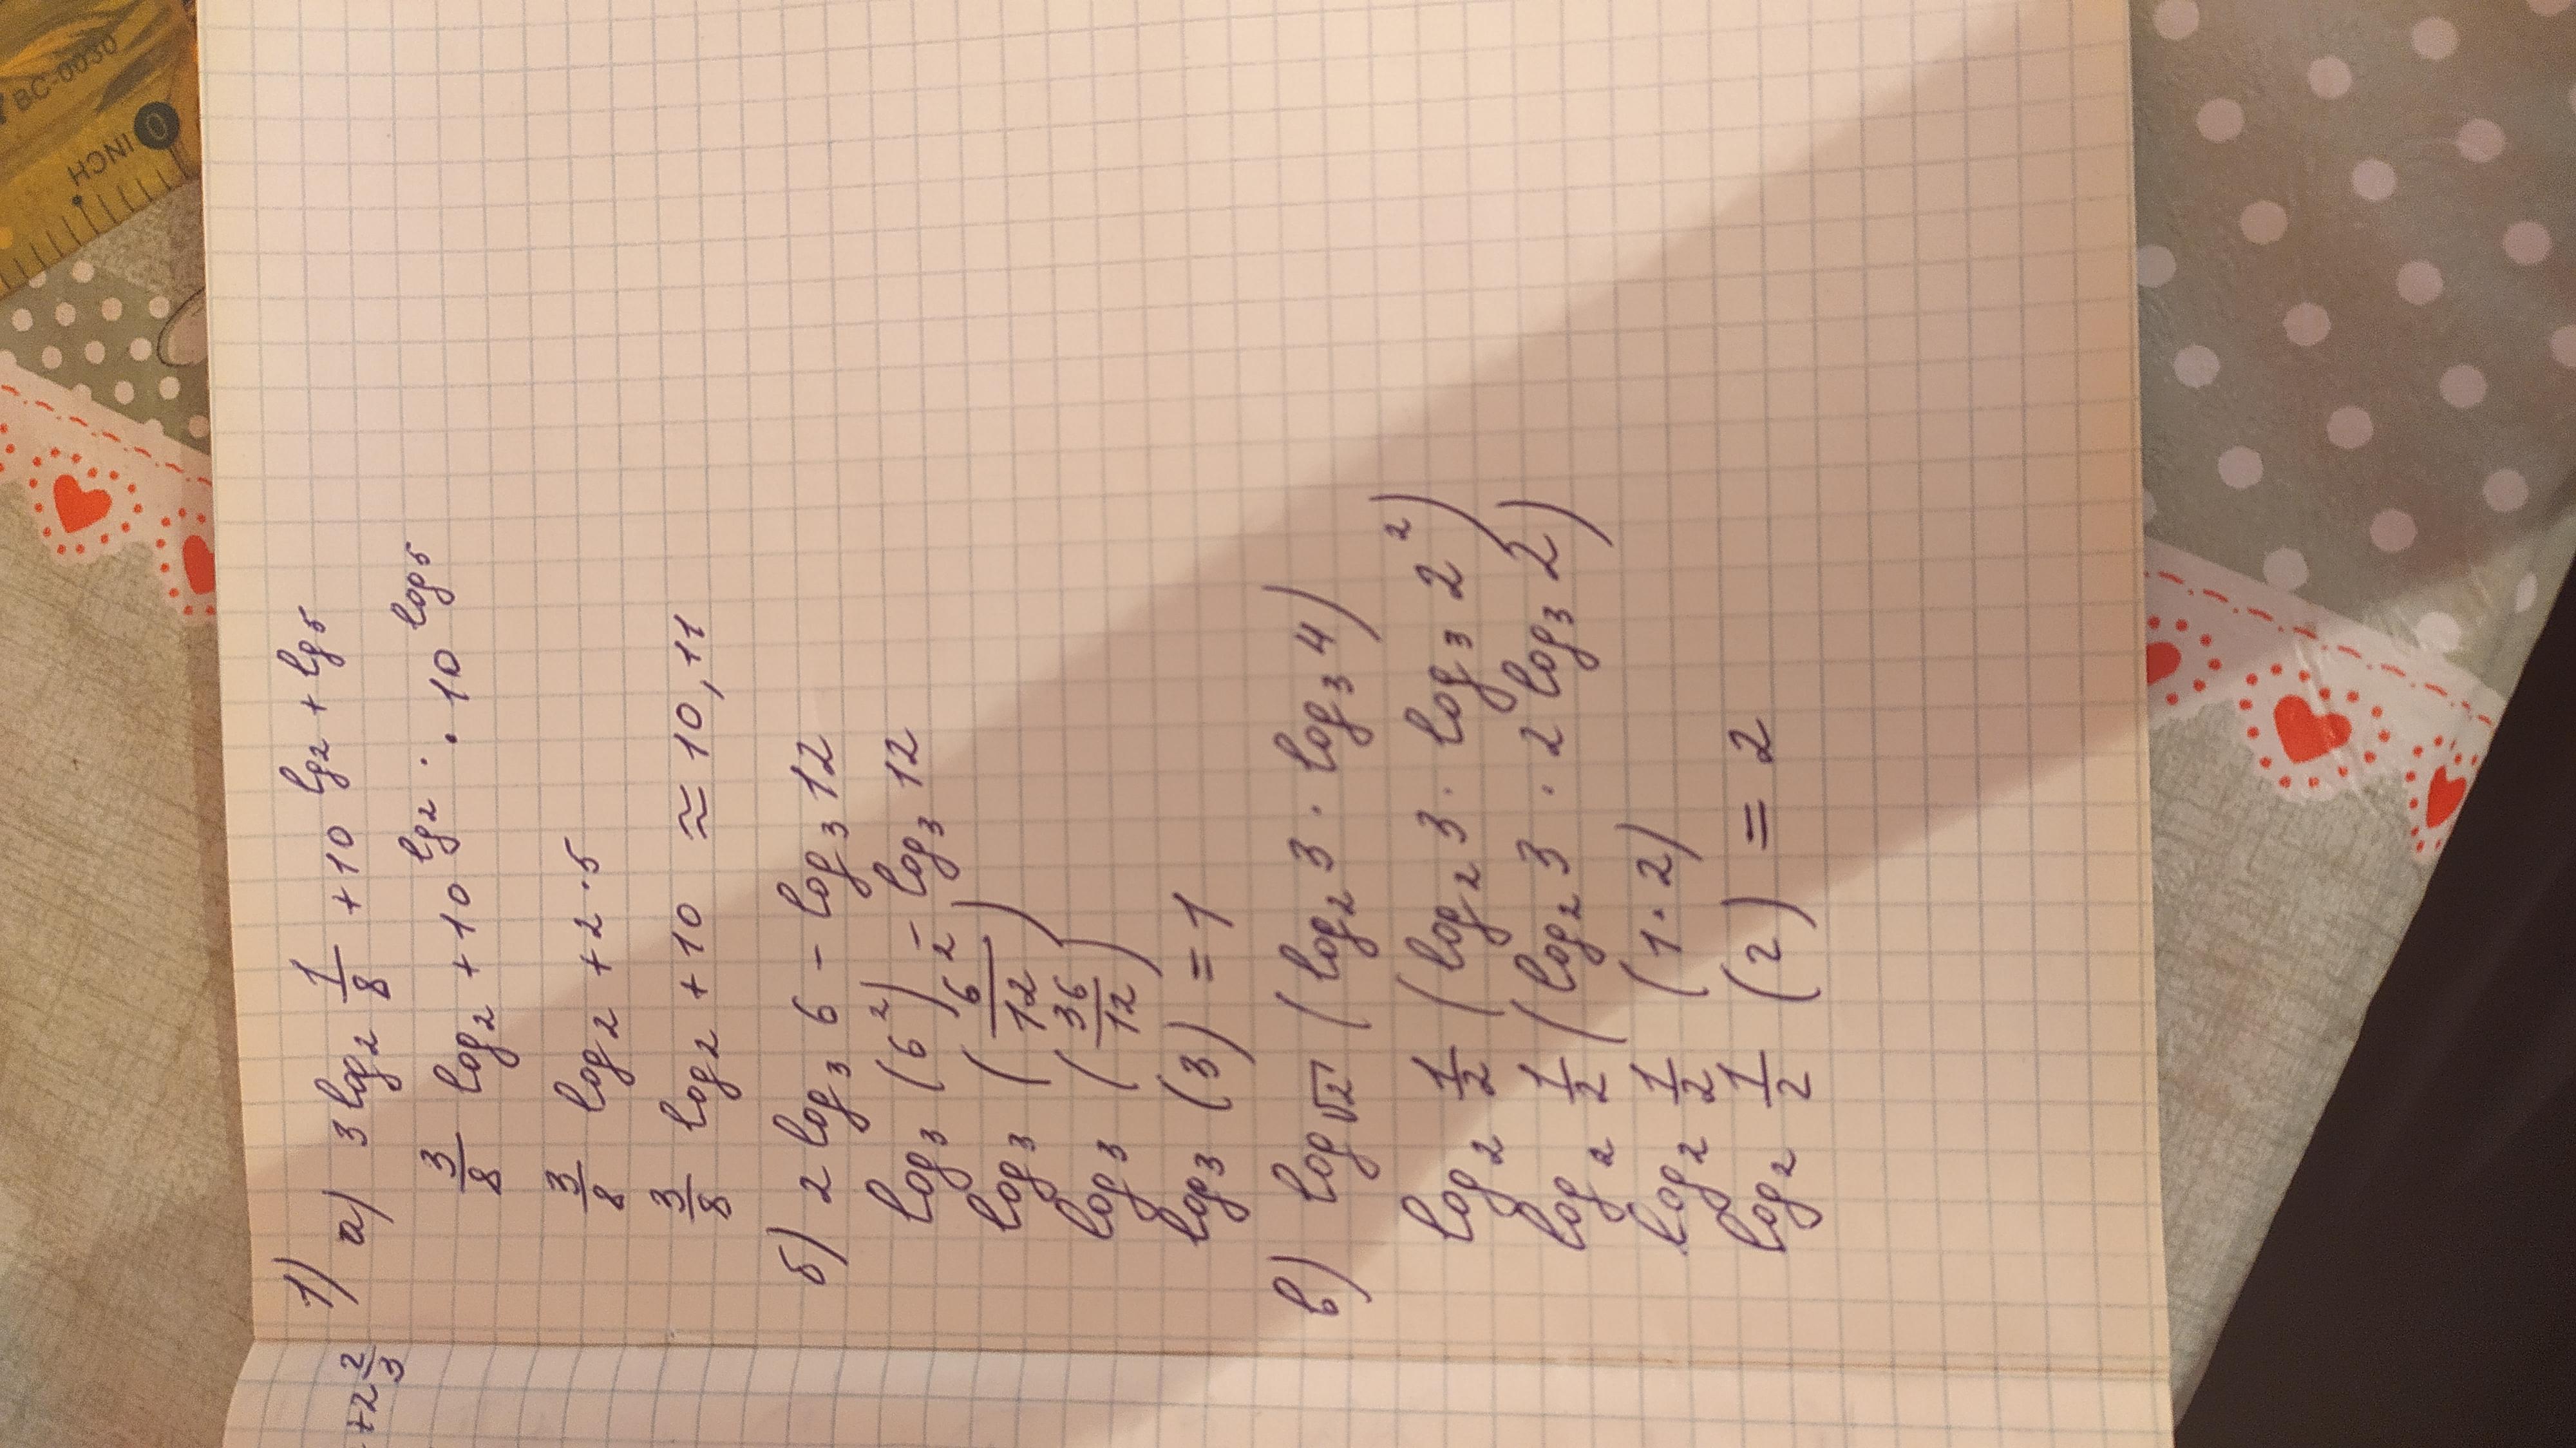 1)
а) 3 log₂ 1/8 + 10 ^(lg2 + lg5)
3/8 log₂ + 10 ^(lg2) · · 10 ^(log5)
3/8 log₂ + 2 · 5
3/8 log₂ + 10 ≈ 10,11
б) 2 log₃ 6 - log₃ 12
log₃ (6²) - log₃ 12
log₃ (6²/12)
log₃ (36/12)
log₃ (3) = 1
в) log√2 (log₂ 3 · log₃ 4)
log₂ 1/2 (log₂ 3 · log₃ 2²)
log₂ 1/2 (log₂ 3 · 2 log₃ 2)
log₂ 1/2 (1 · 2)
log₂ 1/2 (2) = 2
+2 2/3
BC-0030
0 INCH